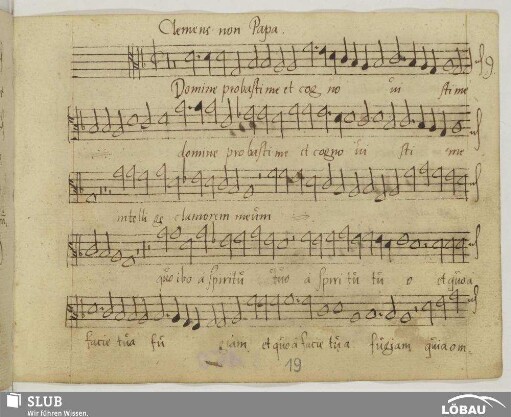 Clemens non Papa.
9.
Domine probasti me et cog no vi sti me
domine probasti me et cogno vi sti me
intelli ge clamorem meum
quo ibo a spiritū tuo a spiri tū tu o et quo a
facie tua fu giam et quo a facie tua fugiam quia om
19
SLUB
Wir führen Wissen.
LÖBAU